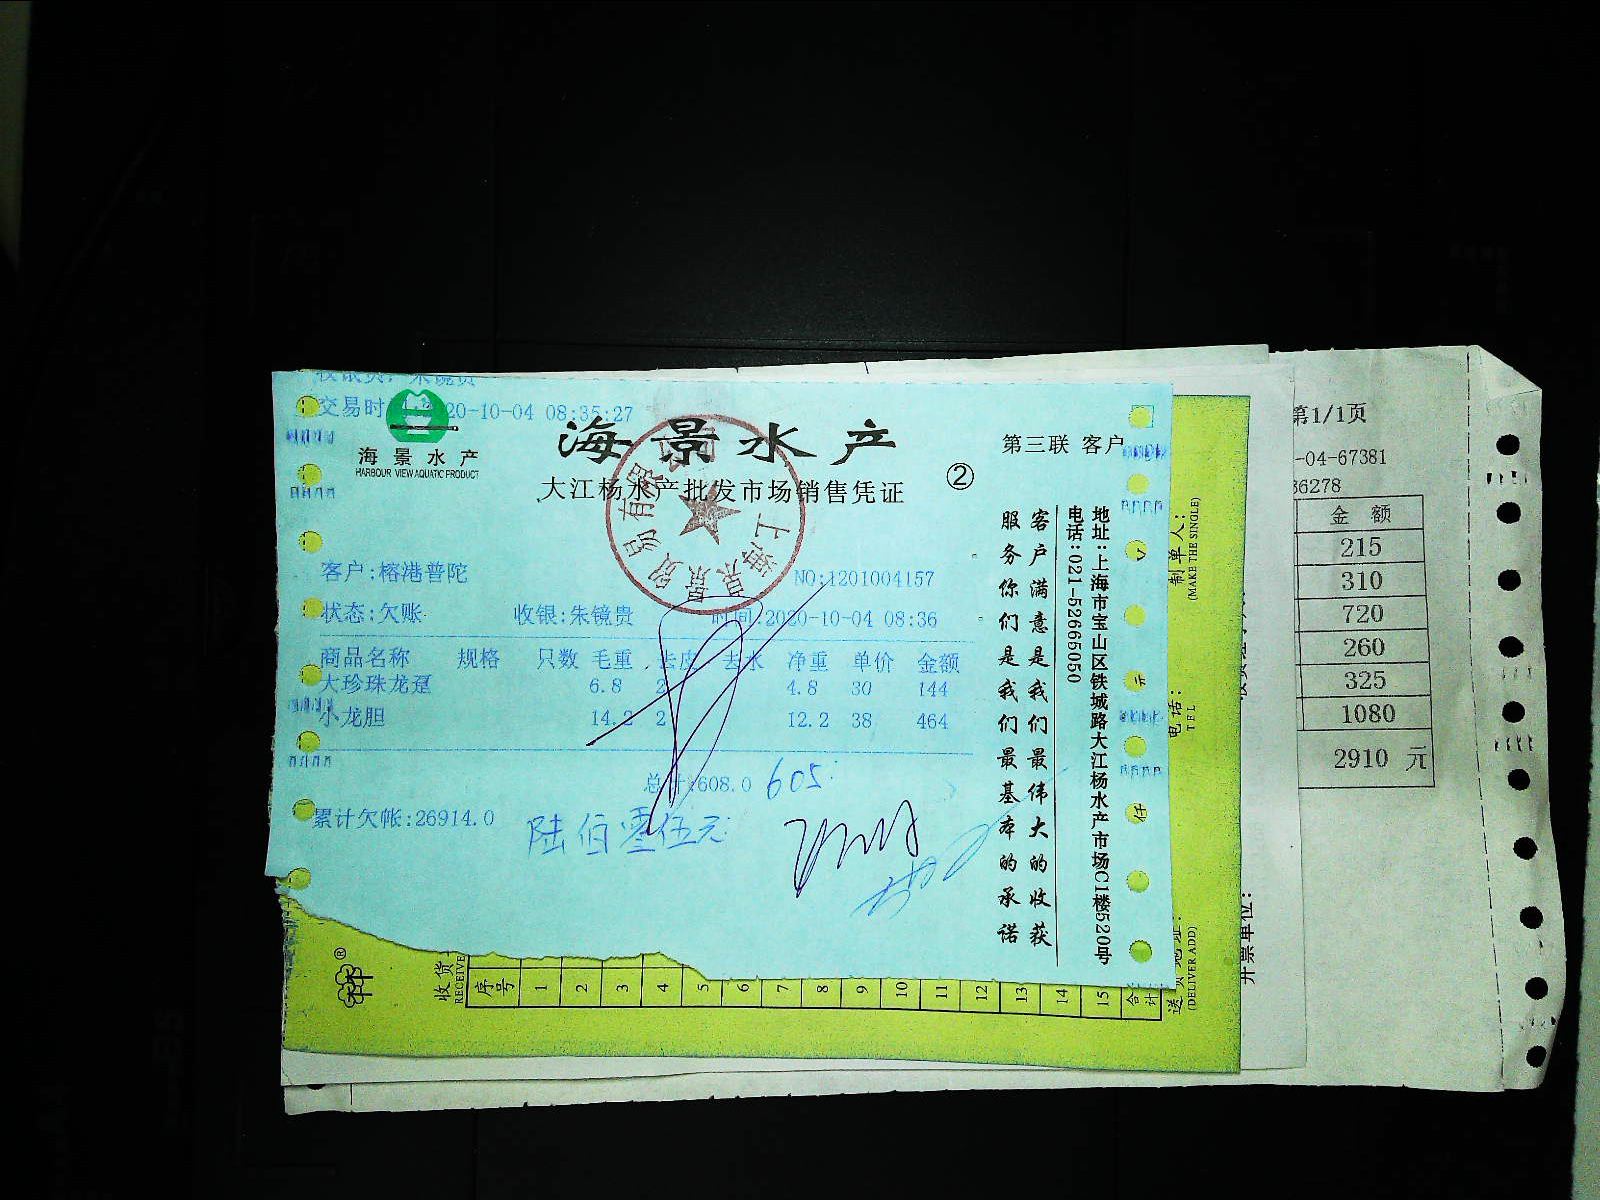 交易时
20-10-04 08:35:27
海景水产
HARBOUR VIEW AQUATIC PRODUCT
海景水产
第三联 客户
大江杨水产批发市场销售凭证
②
客户:榕港普陀
NO:1201004157
状态:欠账
收银:朱镜贵
时间:2020-10-04 08:36
商品名称 规格 只数 毛重 去皮 去水 净重 单价 金额
大珍珠龙趸 6.8 2 4.8 30 144
小龙胆 14.2 2 12.2 38 464
总计:608.0 605
累计欠帐:26914.0
陆佰零伍元
客户满意是我们最伟大的收获
服务你们是我们最基本的承诺
地址:上海市宝山区铁城路大江杨水产市场C1楼520号
电话:021-52665050
制单人:
(MAKE THE SINGLE)
电话:
TEL
(DELIVER ADD)
开票单位:
®
收货
RECEIVE
序号 1 2 3 4 5 6 7 8 9 10 11 12 13 14 15
第1/1页
-04-67381
36278
金 额
215
310
720
260
325
1080
2910 元